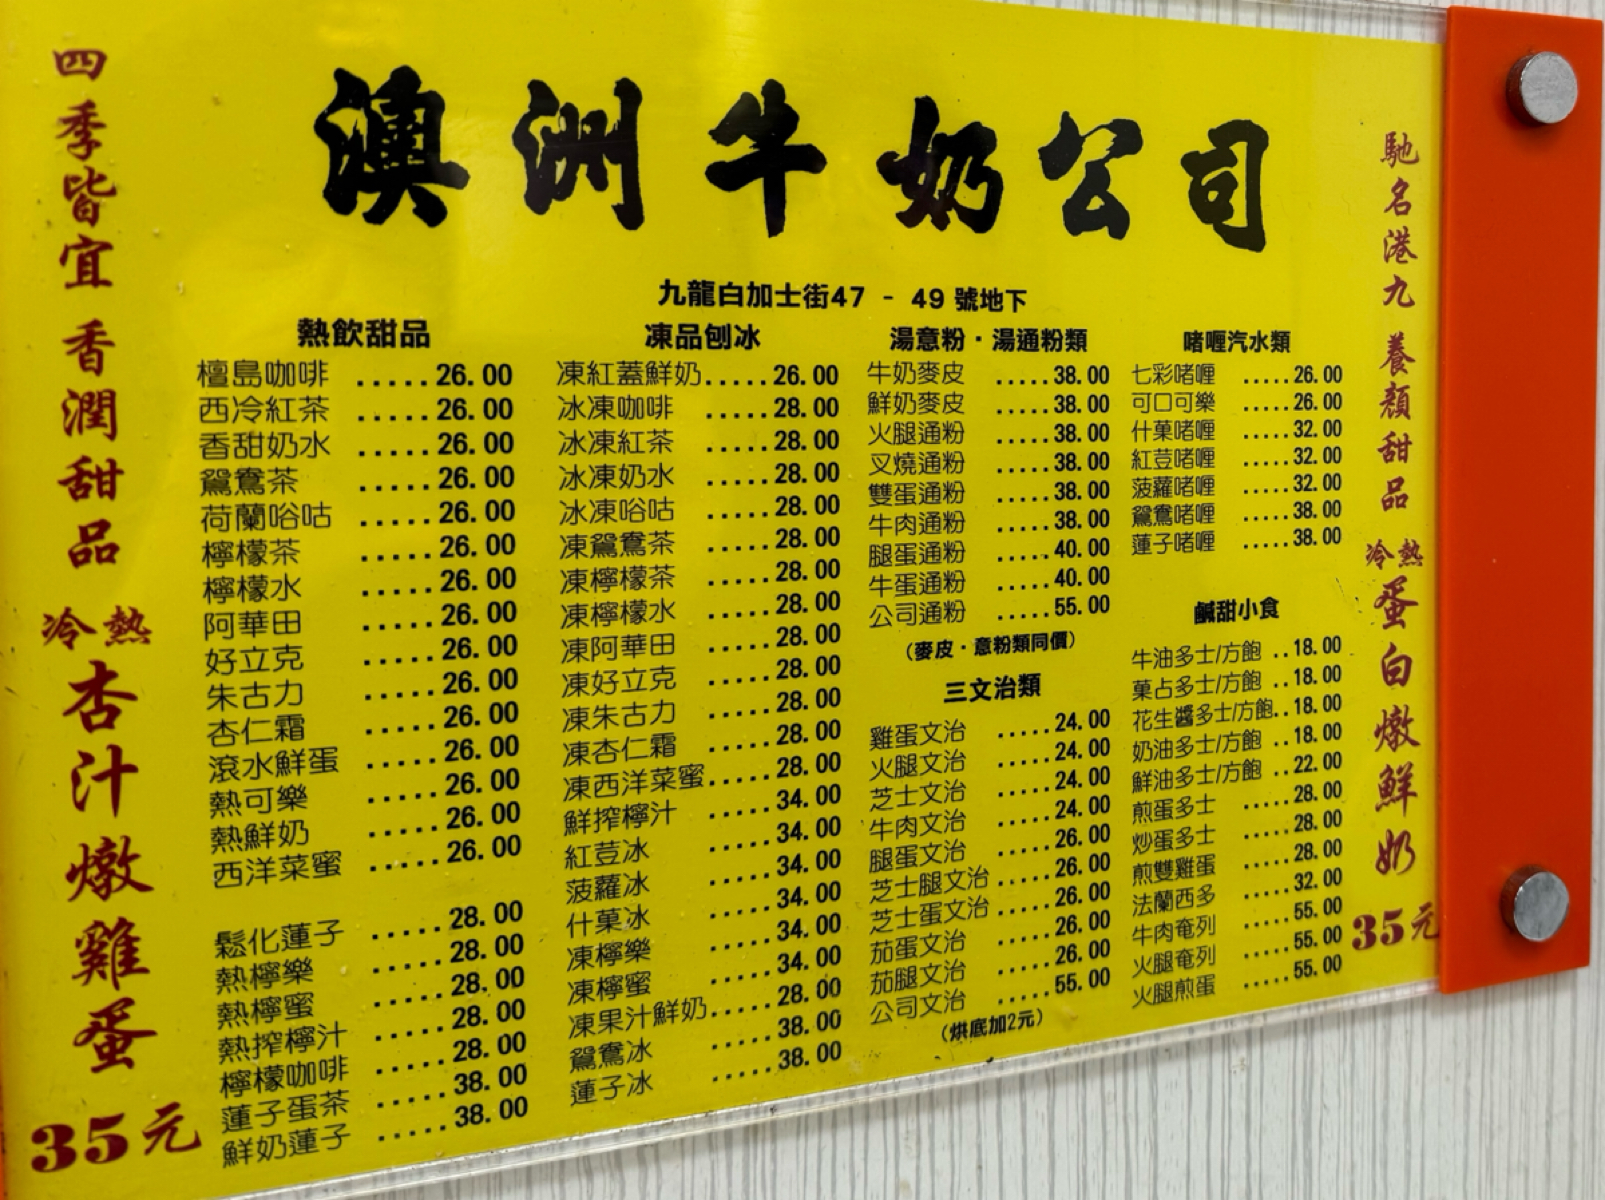 四季皆宜 香潤甜品 冷熱 杏汁燉雞蛋 35元
澳洲牛奶公司
九龍白加士街47 - 49 號地下
熱飲甜品
檀島咖啡 .....26.00
西冷紅茶 .....26.00
香甜奶水 .....26.00
鴛鴦茶 .....26.00
荷蘭唂咕 .....26.00
檸檬茶 .....26.00
檸檬水 .....26.00
阿華田 .....26.00
好立克 .....26.00
朱古力 .....26.00
杏仁霜 .....26.00
滾水鮮蛋 .....26.00
熱可樂 .....26.00
熱鮮奶 .....26.00
西洋菜蜜 .....26.00
鬆化蓮子 .....28.00
熱檸樂 .....28.00
熱檸蜜 .....28.00
熱搾檸汁 .....28.00
檸檬咖啡 .....28.00
蓮子蛋茶 .....38.00
鮮奶蓮子 .....38.00
凍品刨冰
凍紅蓋鮮奶.....26.00
冰凍咖啡 .....28.00
冰凍紅茶 .....28.00
冰凍奶水 .....28.00
冰凍唂咕 .....28.00
凍鴛鴦茶 .....28.00
凍檸檬茶 .....28.00
凍檸檬水 .....28.00
凍阿華田 .....28.00
凍好立克 .....28.00
凍朱古力 .....28.00
凍杏仁霜 .....28.00
凍西洋菜蜜.....28.00
鮮搾檸汁 .....34.00
紅荳冰 .....34.00
菠蘿冰 .....34.00
什菓冰 .....34.00
凍檸樂 .....34.00
凍檸蜜 .....34.00
凍果汁鮮奶.....28.00
鴛鴦冰 .....38.00
蓮子冰 .....38.00
湯意粉·湯通粉類
牛奶麥皮 .....38.00
鮮奶麥皮 .....38.00
火腿通粉 .....38.00
叉燒通粉 .....38.00
雙蛋通粉 .....38.00
牛肉通粉 .....38.00
腿蛋通粉 .....40.00
牛蛋通粉 .....40.00
公司通粉 .....55.00
(麥皮·意粉類同價)
三文治類
雞蛋文治 .....24.00
火腿文治 .....24.00
芝士文治 .....24.00
牛肉文治 .....24.00
腿蛋文治 .....26.00
芝士腿文治 .....26.00
芝士蛋文治 .....26.00
茄蛋文治 .....26.00
茄腿文治 .....26.00
公司文治 .....55.00
(烘底加2元)
啫喱汽水類
七彩啫喱 .....26.00
可口可樂 .....26.00
什菓啫喱 .....32.00
紅荳啫喱 .....32.00
菠蘿啫喱 .....32.00
鴛鴦啫喱 .....38.00
蓮子啫喱 .....38.00
鹹甜小食
牛油多士/方飽 ..18.00
菓占多士/方飽 ..18.00
花生醬多士/方飽..18.00
奶油多士/方飽 ..18.00
鮮油多士/方飽 ..22.00
煎蛋多士 .....28.00
炒蛋多士 .....28.00
煎雙雞蛋 .....28.00
法蘭西多 .....32.00
牛肉奄列 .....55.00
火腿奄列 .....55.00
火腿煎蛋 .....55.00
馳名港九 養顏甜品 冷熱 蛋白燉鮮奶 35元